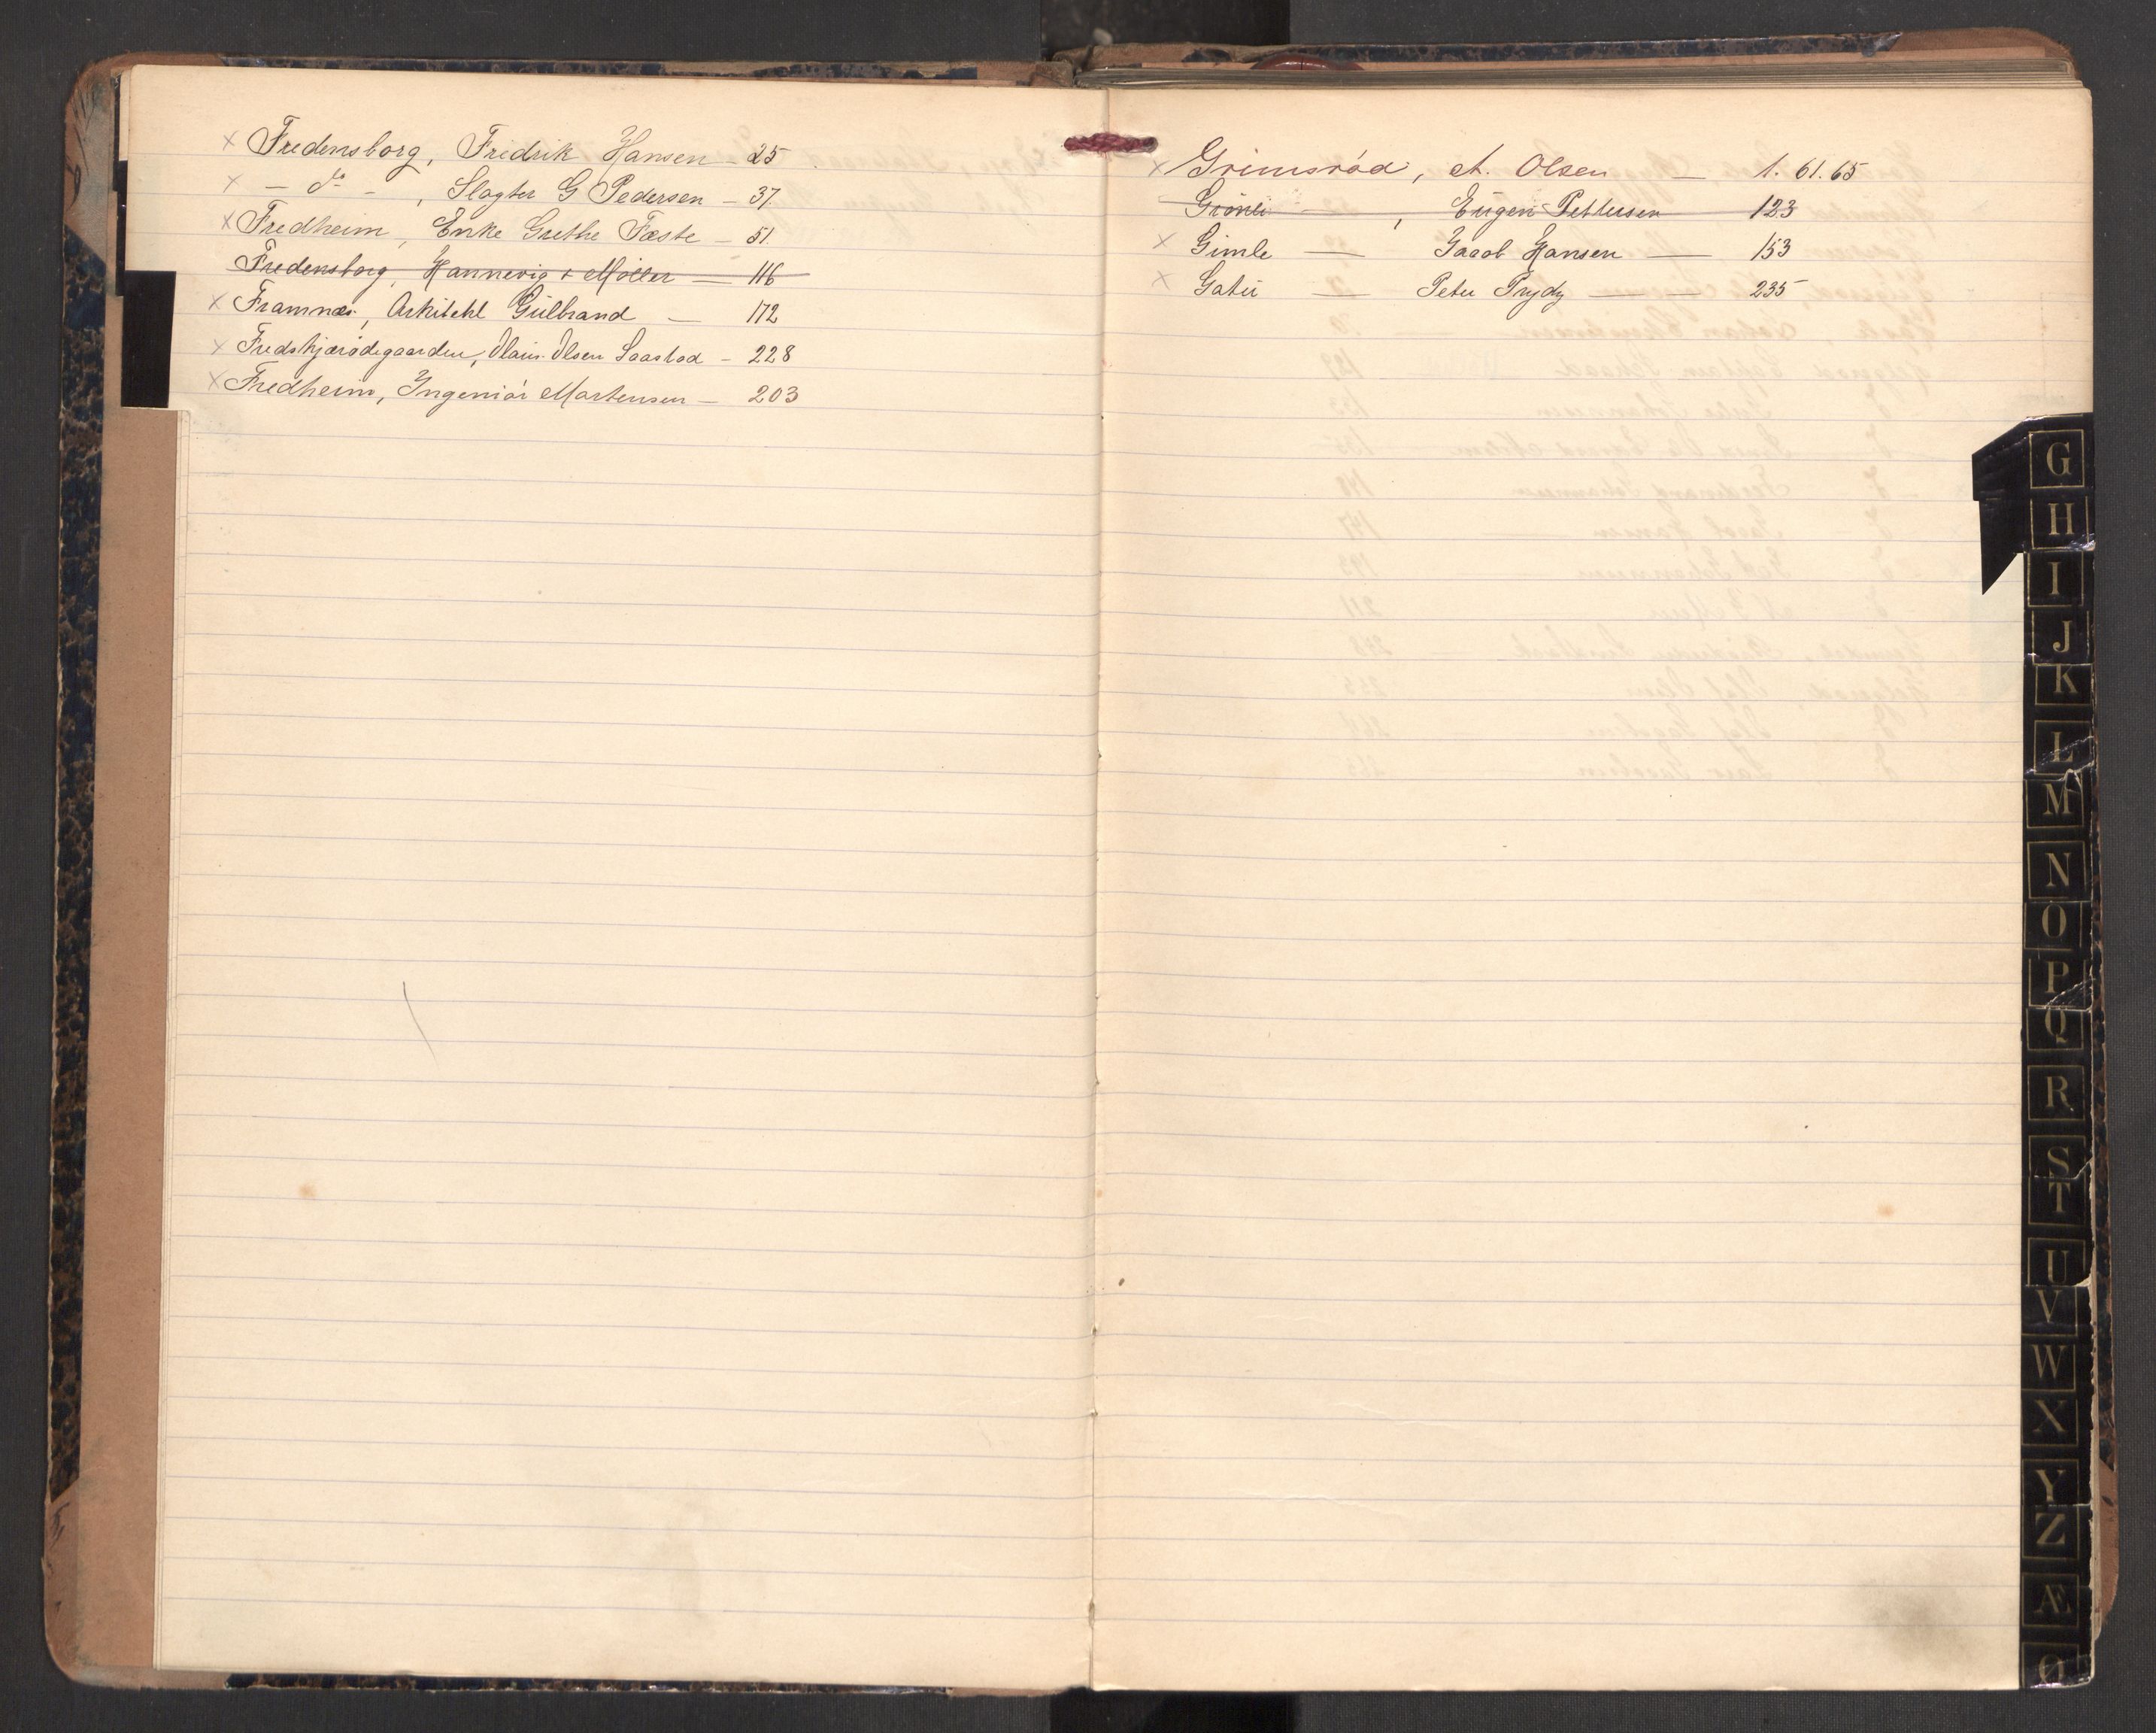 × Fredensborg, Fridrik Hansen – 25
× – do – , Slagter G Pedersen – 37.
× Fredheim, Enke Grethe Fæste – 51.
Fredensborg, Hannevig & Möller — 116
× Framnæs, Arkitekt Gülbrand — 172
× Olsen Saastad – 228
× Fredheim, Ingeniör Mortensen – 203
× Grimsröd, A. Olsen — 1. 61. 65
Grönli , Eügen Pettersen 123
× Gimle — Jacob Hansen — 153
× — Peter Prydz — 235
G
H
I
J
K
L
M
N
O
P
Q
R
S
T
U
V
W
X
Y
Z
Æ
Ø